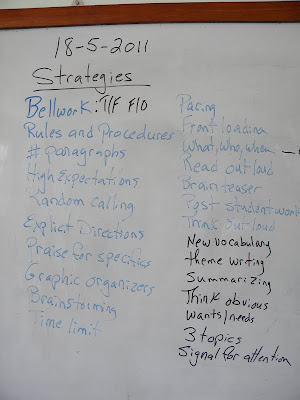 18-5-2011
Strategies
Bellwork: T/F F/O
Rules and Procedures
# paragraphs
High Expectations
Random calling
Explict Directions
Praise for specifics
Graphic organizers
Brainstorming
Time limit
Pacing
Front loading
What, Who, when
Read out loud
Brain teaser
Post Student work
Think out loud
New vocabulary
theme writing
Summarizing
Think obvious
wants/needs
3 topics
Signal for attention